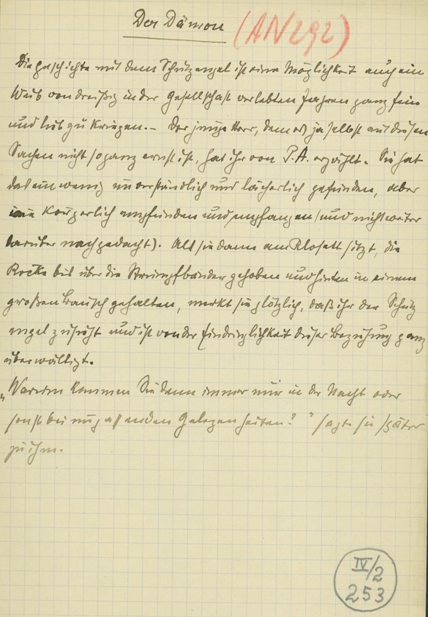 Der Dämon (AN 292)
Die Geschichte mit dem Schutzengel ist eine Möglichkeit auch ein
Weib von dreißig in der Gesellschaft verlebten Jahren ganz fein
und lieb zu kriegen. – Der junge Herr, dem es ja selbst mit diesen
Sachen nicht so ganz ernst ist, hat ihr von P.A. erzählt. Sie hat
das ein wenig unverständlich und lächerlich gefunden, aber
körperlich empfunden und empfangen (und nicht weiter
darüber nachgedacht). Als sie dann am Klosett sitzt, die
Röcke bis über die Strumpfbänder gehoben und hinten in einem
großen Bausch gehalten, merkt sie plötzlich, daß ihr der Schutz
engel zusieht und ist von der Eindringlichkeit dieser Beziehung ganz
überwältigt.
„Warum kommen Sie denn immer nur in der Nacht oder
sonst bei Gelegenheiten?" sagte sie später
zu ihm.
IV/2
253